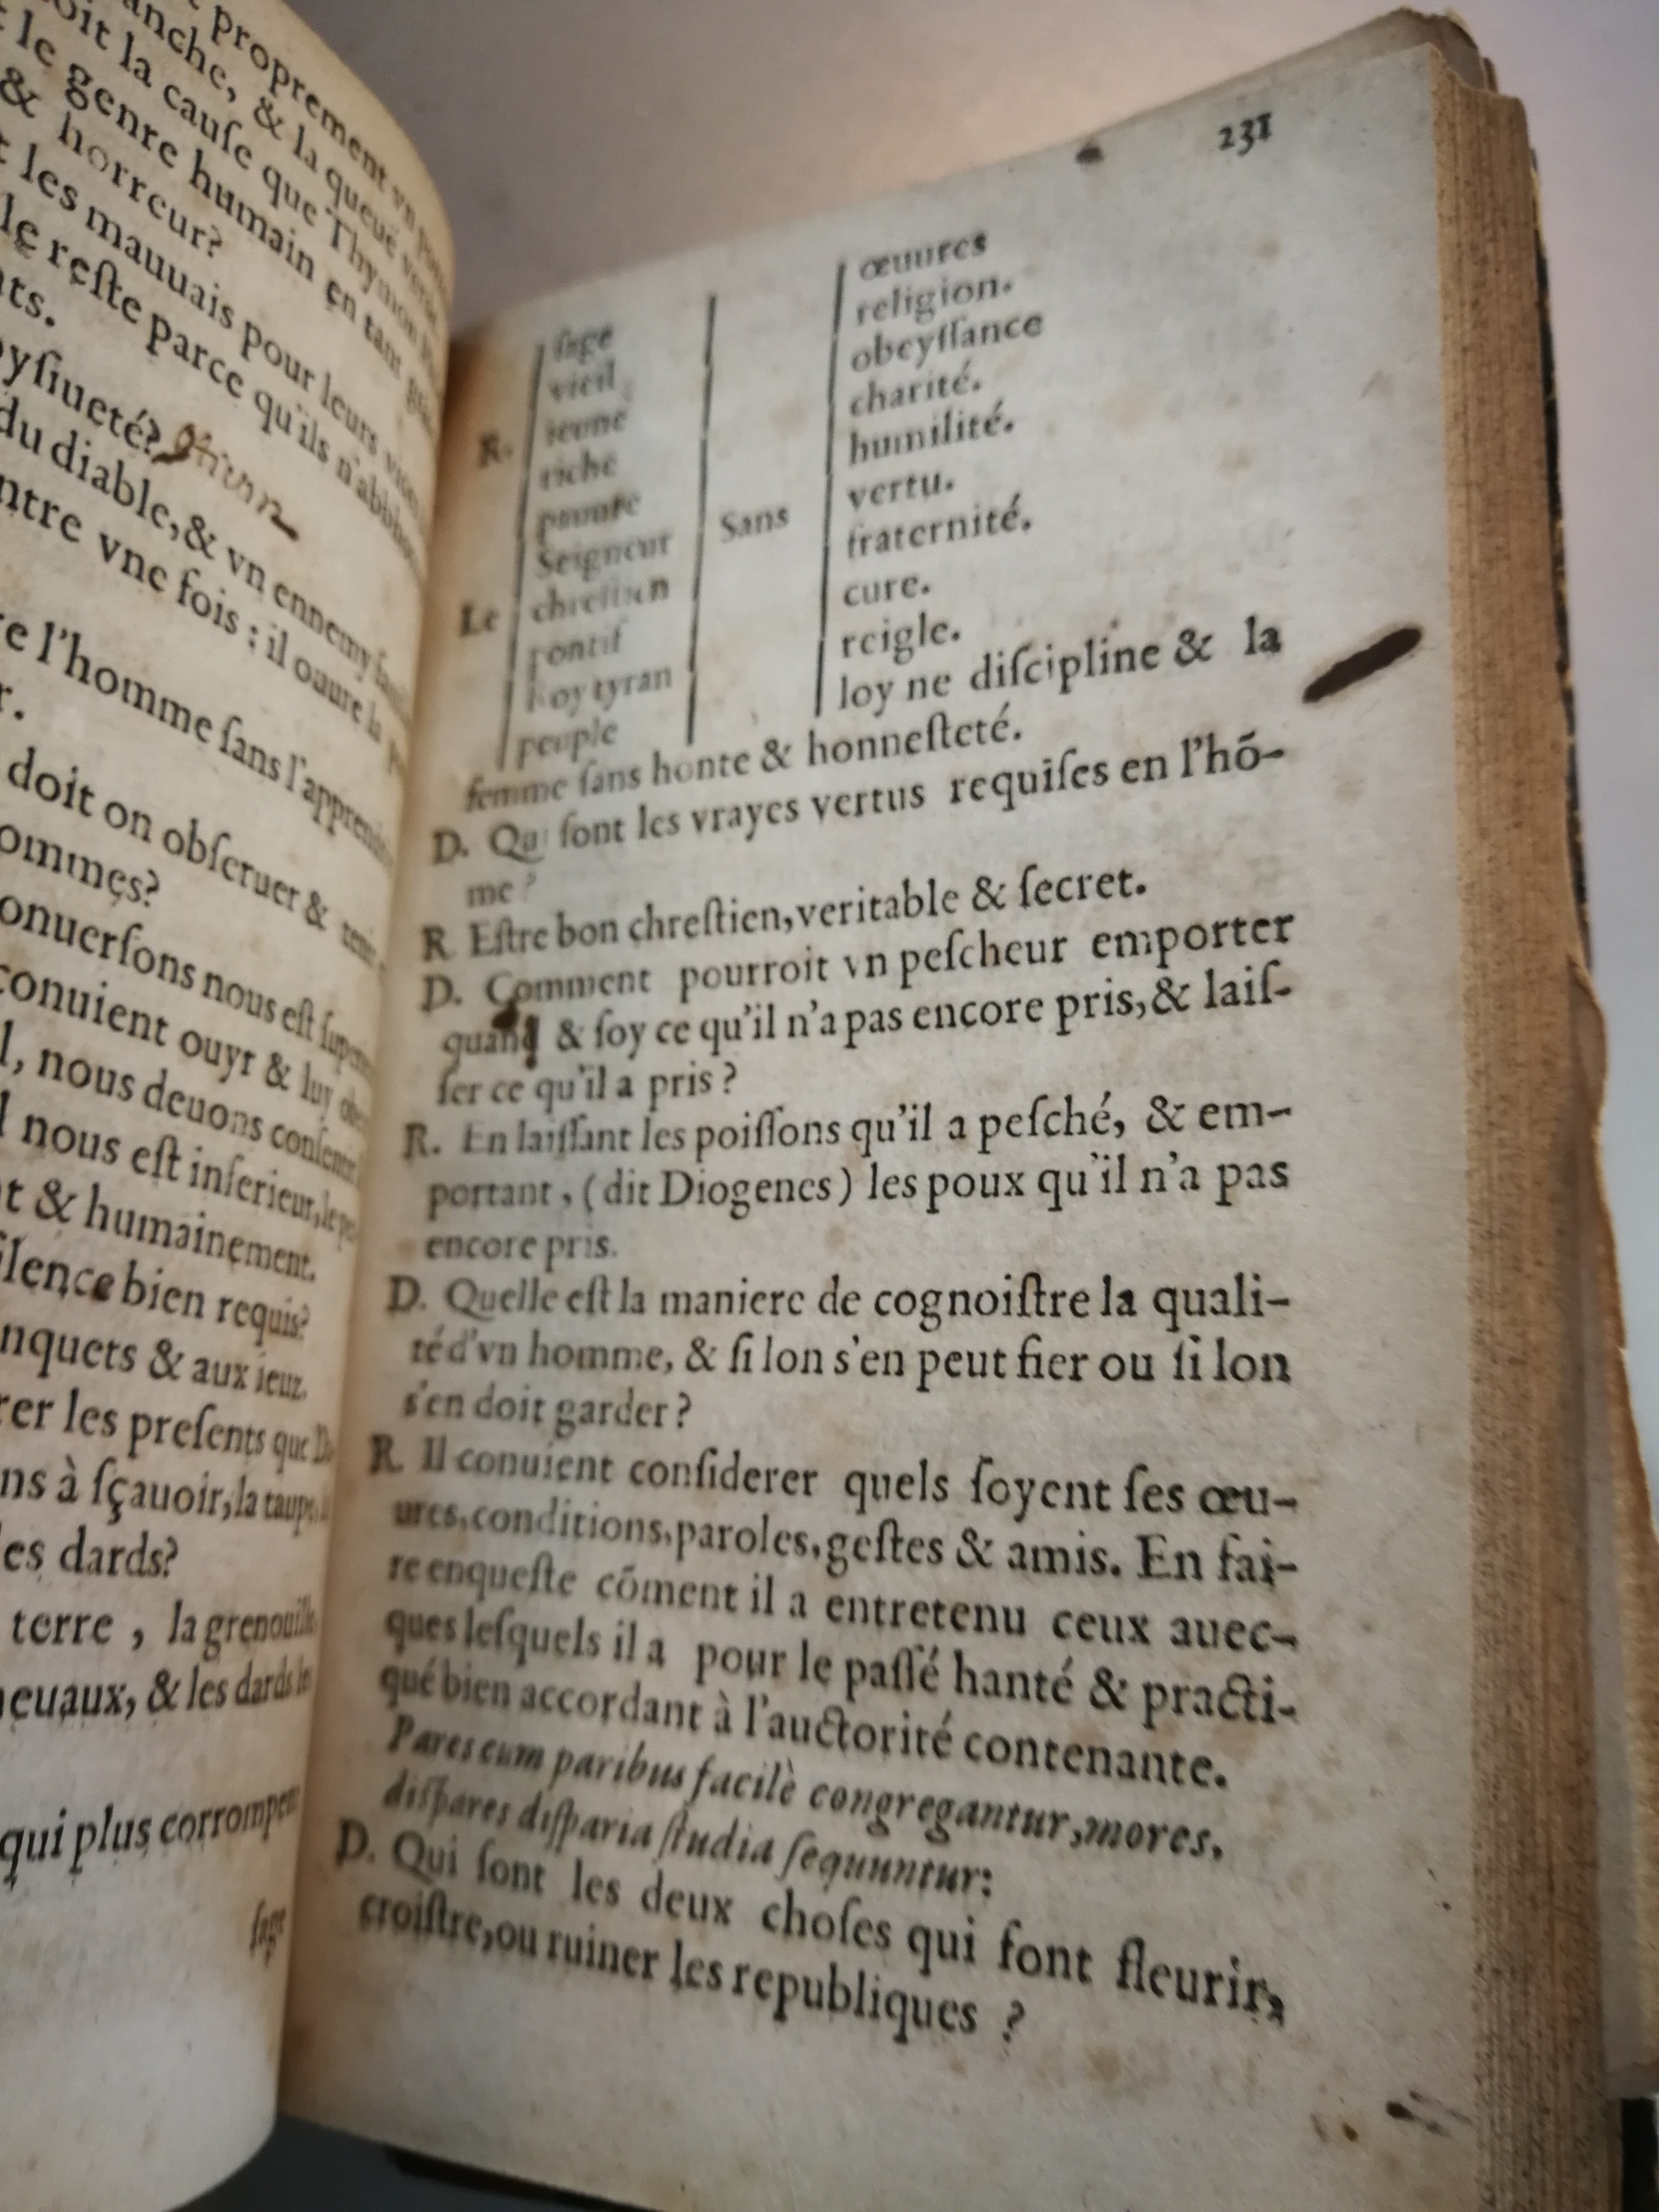 proprement vn
anche, & la queuë
oit la cauſe que Thymon
le genre humain en tant
& horreur?
les mauuais pour leurs
le reſte parce qu'ils n'abhor
ts.
yſiueté?
du diable, & vn ennemy
ntre vne fois : il ouure la
e l'homme ſans l'apprendre
r.
doit on obſeruer &
ommes?
onuerſons nous eſt
conuient ouyr & luy
l, nous deuons conſentir
l nous eſt inferieur,
t & humainement.
ilence bien requis?
nquets & aux ieuz.
rer les preſents que
ns à ſçauoir, la taupe,
es dards?
terre , la grenouille
euaux, & les dards
qui plus corrompent
ſage
231
R.
Le
ſage
vieil
ieune
riche
pauure
Seigneur
chreſtien
pontif
Roy tyran
peuple
Sans
œuures
religion.
obeyſſance
charité.
humilité.
vertu.
fraternité.
cure.
reigle.
loy ne diſcipline & la
femme ſans honte & honneſteté.
D. Qui ſont les vrayes vertus requiſes en l'hō-
me ?
R Eſtre bon chreſtien, veritable & ſecret.
D. Comment pourroit vn peſcheur emporter
quand & ſoy ce qu'il n'a pas encore pris, & laiſ-
ſer ce qu'il a pris ?
R. En laiſſant les poiſſons qu'il a peſché, & em-
portant , ( dit Diogenes ) les poux qu'il n'a pas
encore pris.
D. Quelle eſt la maniere de cognoiſtre la quali-
té d'vn homme, & ſi lon s'en peut fier ou ſi lon
s'en doit garder ?
R. Il conuient conſiderer quels ſoyent ſes œu-
ures, conditions, paroles, geſtes & amis. En fai-
re enqueſte cōment il a entretenu ceux auec-
ques leſquels il a pour le paſſé hanté & practi-
qué bien accordant à l'auctorité contenante.
Pares cum paribus facilè congregantur, mores,
diſpares diſparia ſtudia ſequuntur:
D. Qui ſont les deux choſes qui font fleurir,
croiſtre, ou ruiner les republiques ?